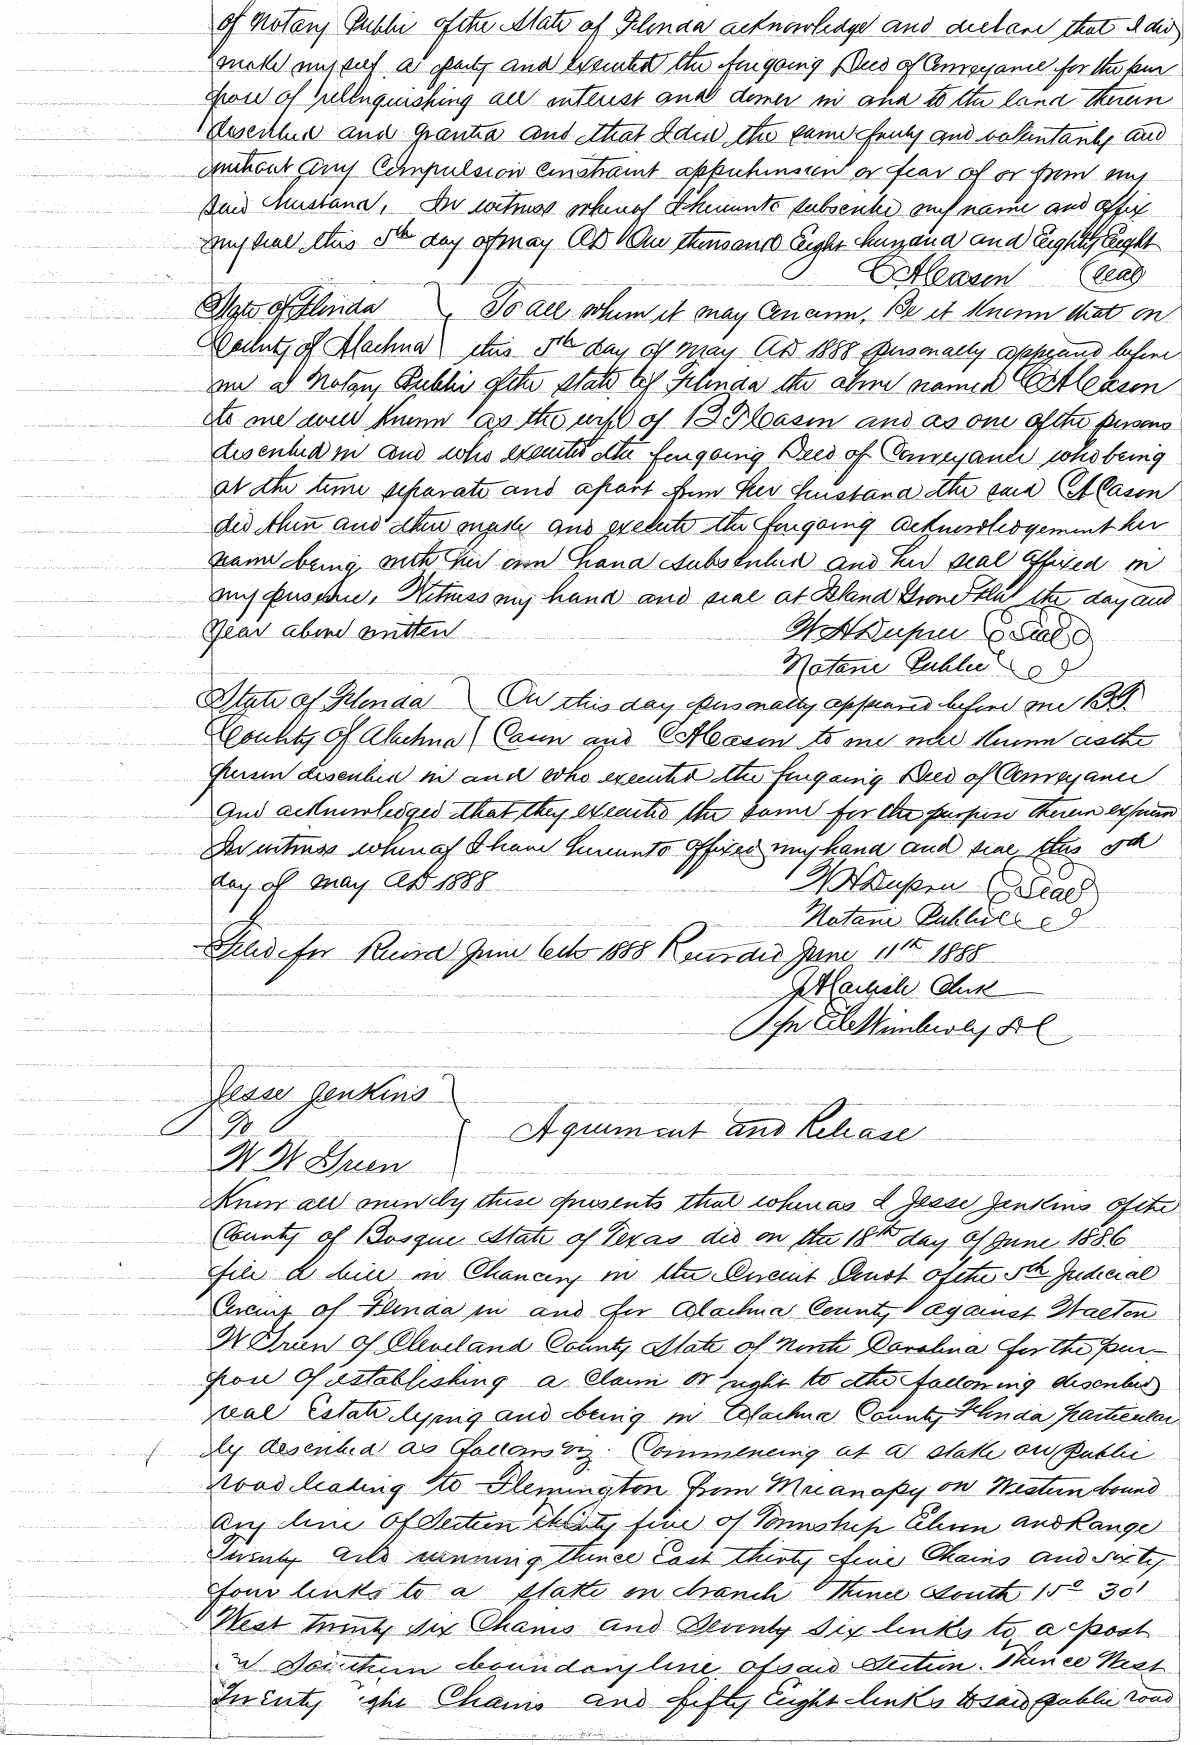 of Notary Public of the State of Florida acknowledge and declare that I did
make myself a party and executed the foregoing Deed of Conveyance for the pur
pose of relinquishing all interest and dower in and to the land therein
described and granted and that I did the same freely and voluntarily and
without any Compulsion constraint apprehension or fear of or from my
said husband, In witness whereof I hereunto subscribe my name and affix
my seal this 5th day of May AD One thousand Eight hundred and Eighty Eight
C A Cason (seal)
State of Florida } To all whom it may Concern, Be it Known that on
County of Alachua } this 5th day of May AD 1888 personally appeared before
me a Notary Public of the State of Florida the above named C A Cason
to me well known as the wife of B F Cason and as one of the persons
described in and who executed the foregoing Deed of Conveyance who being
at the time separate and apart from her husband the said C A Cason
did then and there make and execute the foregoing acknowledgement her
name being with her own hand subscribed and her seal affixed in
my presence, Witness my hand and seal at Island Grove Fla the day and
year above written W H Dupree (Seal)
Notarie Public
State of Florida } On this day personally appeared before me B F
County of Alachua } Cason and C A Cason to me well Known as the
person described in and who executed the foregoing Deed of Conveyance
and acknowledged that they executed the same for the purpose therein expressed
In witness whereof I have hereunto affixed my hand and seal this 5th
day of May AD 1888 W H Dupree (Seal)
Notarie Public
Filed for Record June 6th 1888 Recorded June 11th 1888
J A Carlisle Clerk
Wimberly D C
Jesse Jenkins }
To } Agreement and Release
W W Green
Know all men by these presents that whereas I Jesse Jenkins of the
County of Bosque State of Texas did on the 18th day of June 1886
file a bill in Chancery in the Circuit Court of the 5th Judicial
Circuit of Florida in and for Alachua County against Walton
W Green of Cleveland County State of North Carolina for the pur-
pose of establishing a claim or right to the following described
real Estate lying and being in Alachua County Florida particular
ly described as follows viz. Commencing at a stake on public
road leading to Flemington from Micanopy on Western bound
ary line of Section thirty five of Township Eleven and Range
Twenty and running thence East thirty five Chains and sixty
four links to a stake on branch Thence South 15° 30'
West twenty six Chains and Seventy Six links to a post
Southern boundary line of said Section. Thence West
Twenty Chains and fifty Eight links to said public road